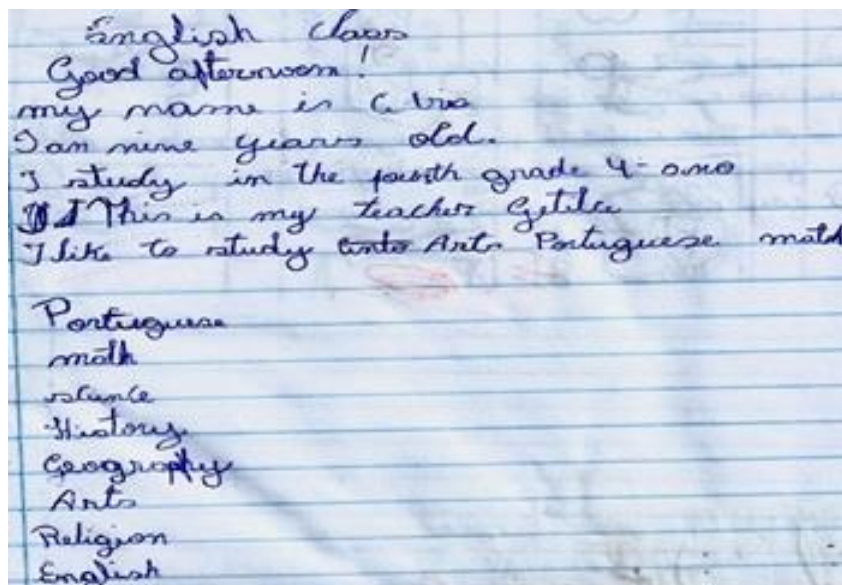 English Class
Good afternoon!
my name is
I am nine years old.
I study in the fourth grade 4º ano
This is my teacher
I like to study Arts Portuguese math
Portuguese
math
science
History
Geography
Arts
Religion
English